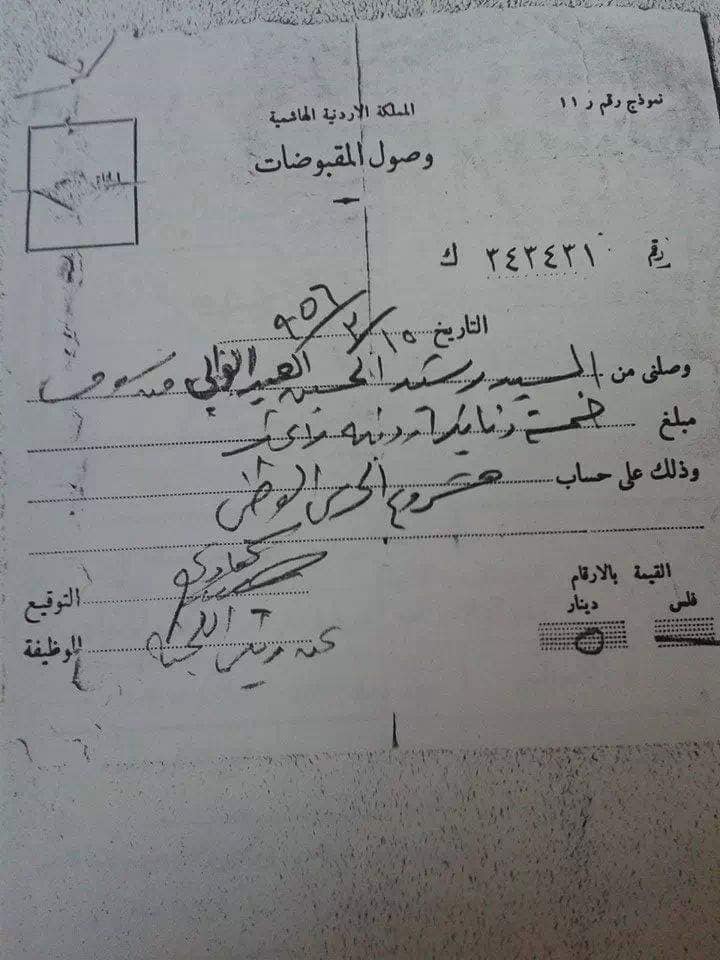 نموذج رقم ر ١١
المملكة الاردنية الهاشمية
وصول المقبوضات
الختم
رقم ٣٤٣٤٣١ ك
التاريخ ١٥/٣/٩٥٦
وصلني من السيد رشيد الحسين العبد الوالي من سوف
مبلغ خمسة دنانير اردنيه
وذلك على حساب مشروع الحرس الوطني
القيمة بالارقام
فلس دينار
التوقيع
الوظيفة عن رئيس اللجنة